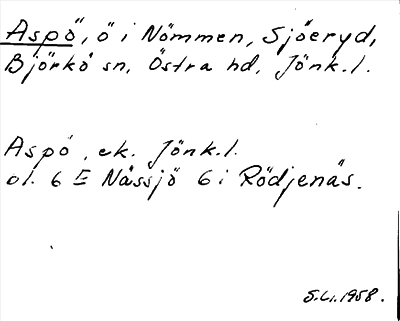 Aspö, ö i Nömmen, Sjöeryd,
Björkö sn, Östra hd, Jönk.l.
Aspö, ek. Jönk.l.
6 E Nässjö 6 i Rödjenäs.
1958.